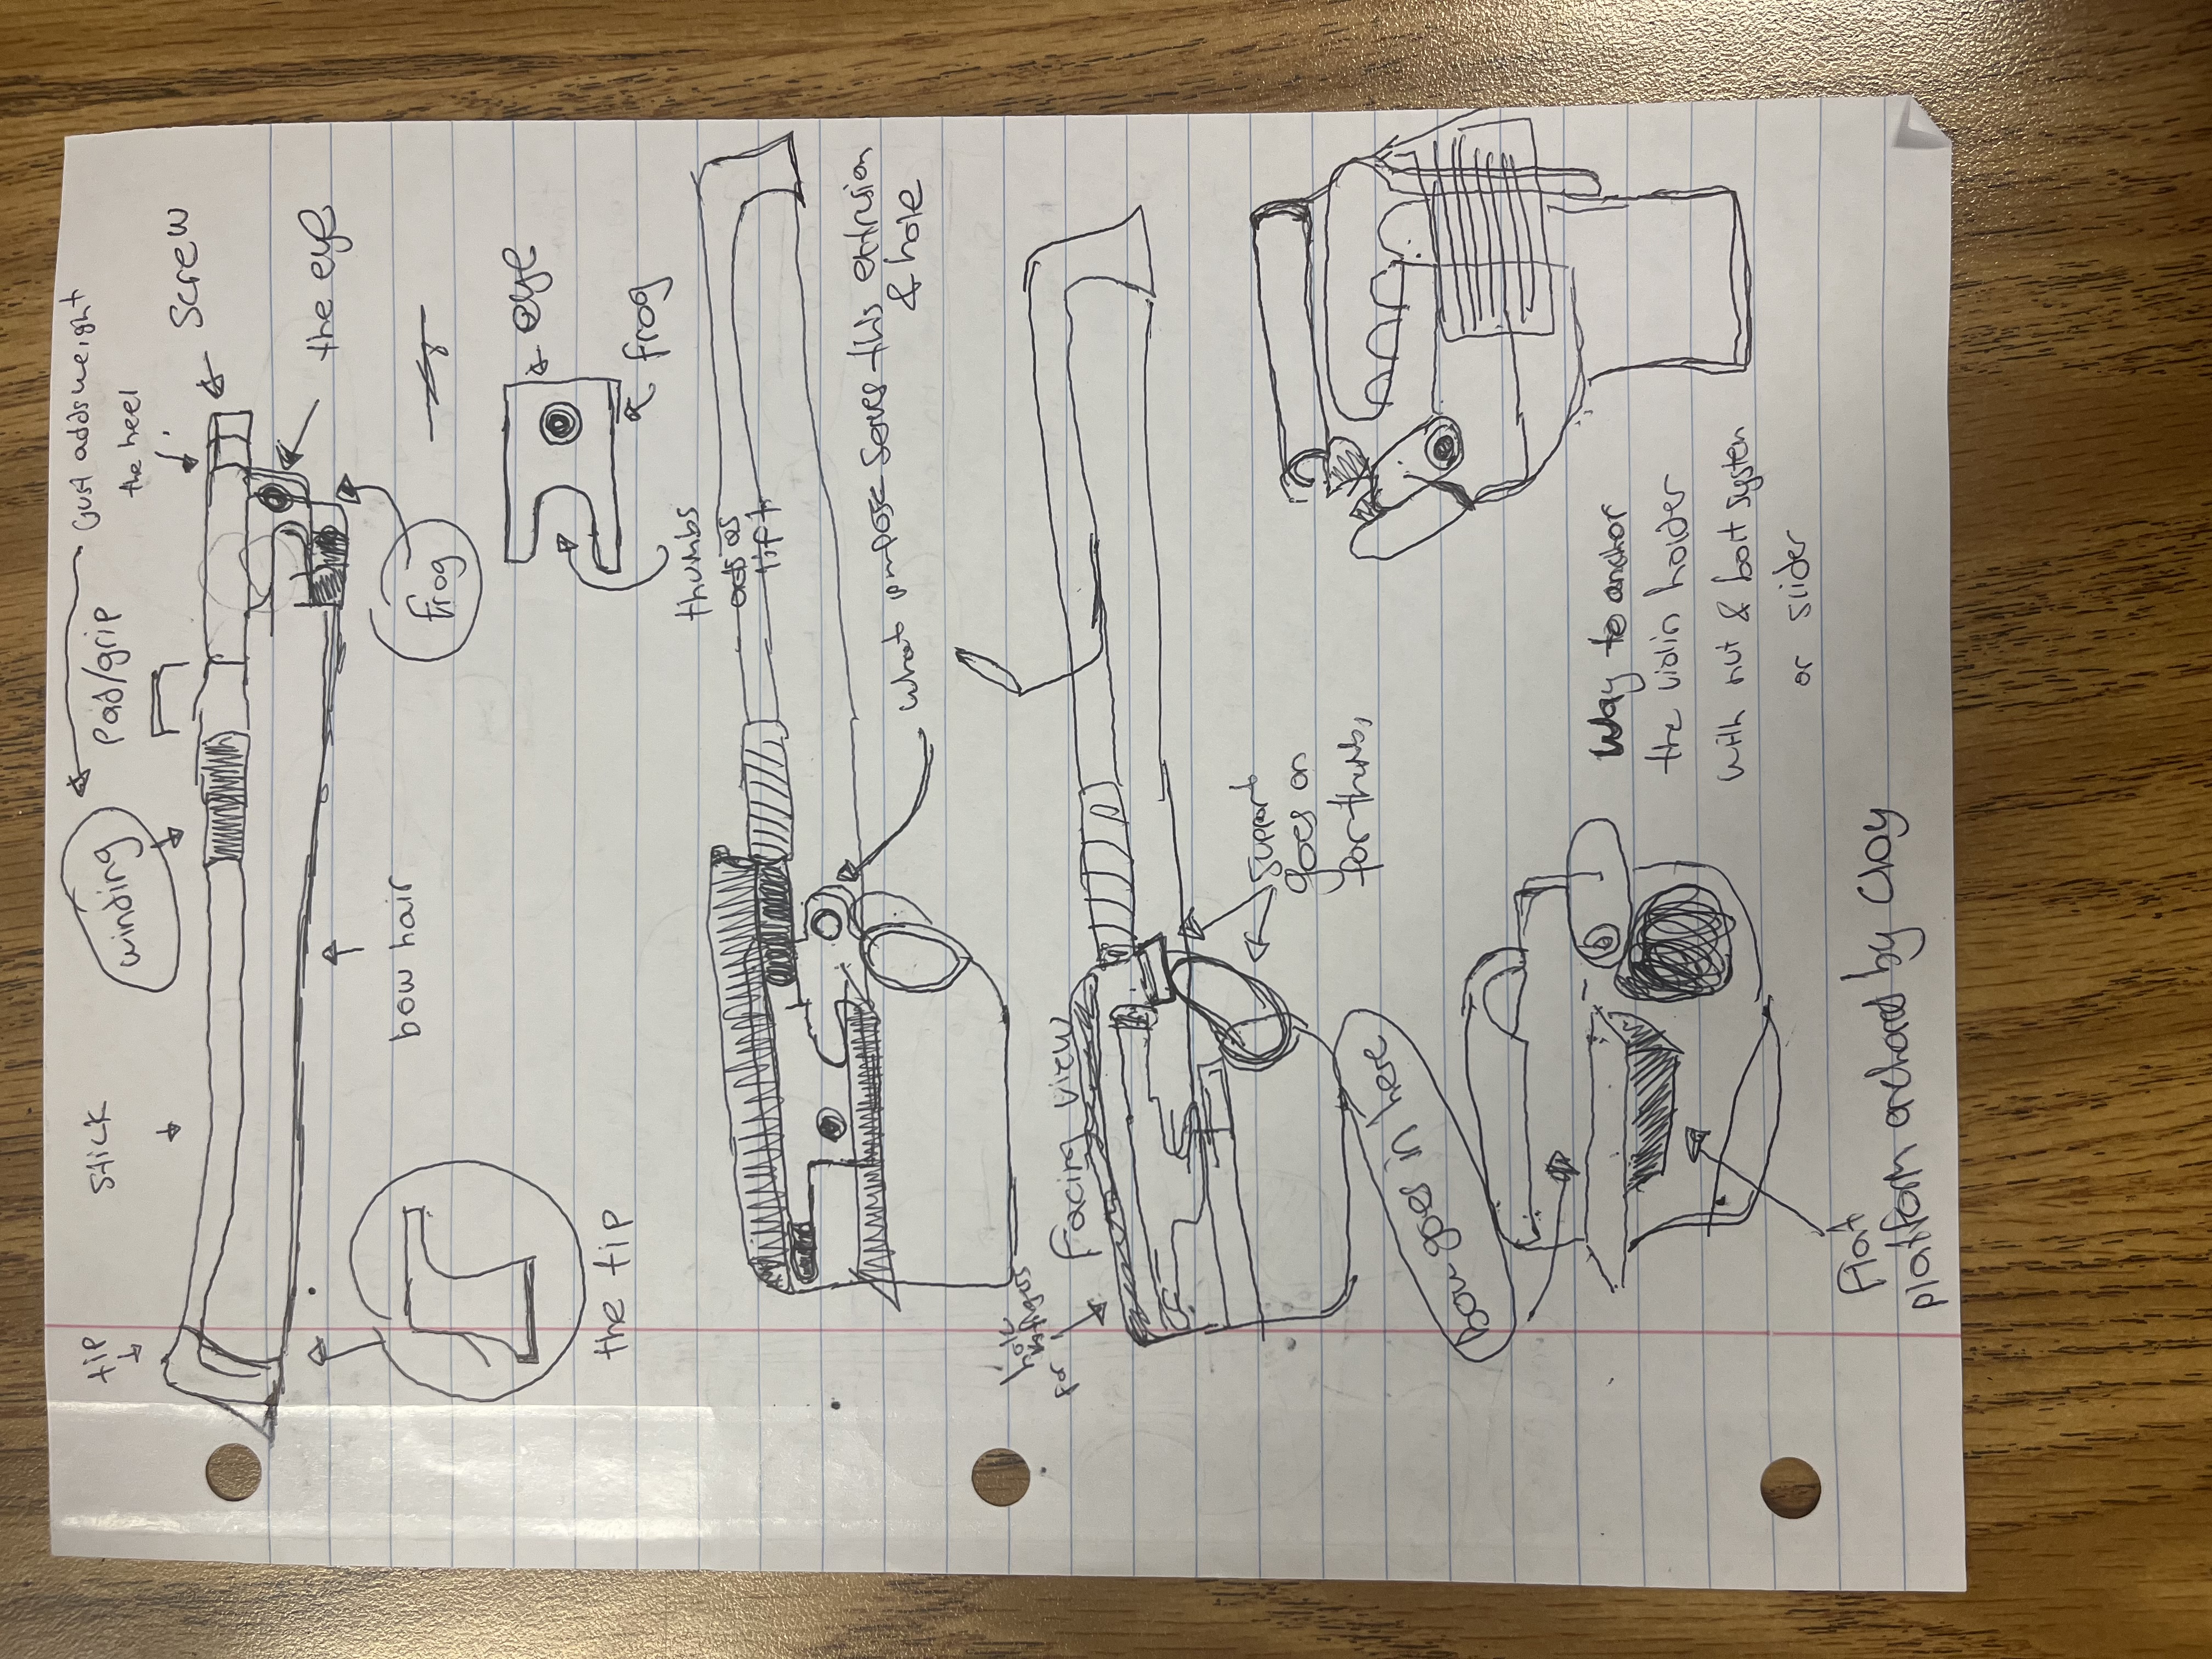 tip
stick
winding
Pad/grip
Just adds weight
the heel
Screw
the eye
bow hair
frog
the tip
eye
frog
thumbs
acts as
lift
what purpose serves this extrusion
& hole
hole
for
fingers
Facing view
support
goes on
for thumb,
Bow goes in here
Way to anchor
the violin holder
with nut & bolt system
or slider
Flat
platform anchored by Clay